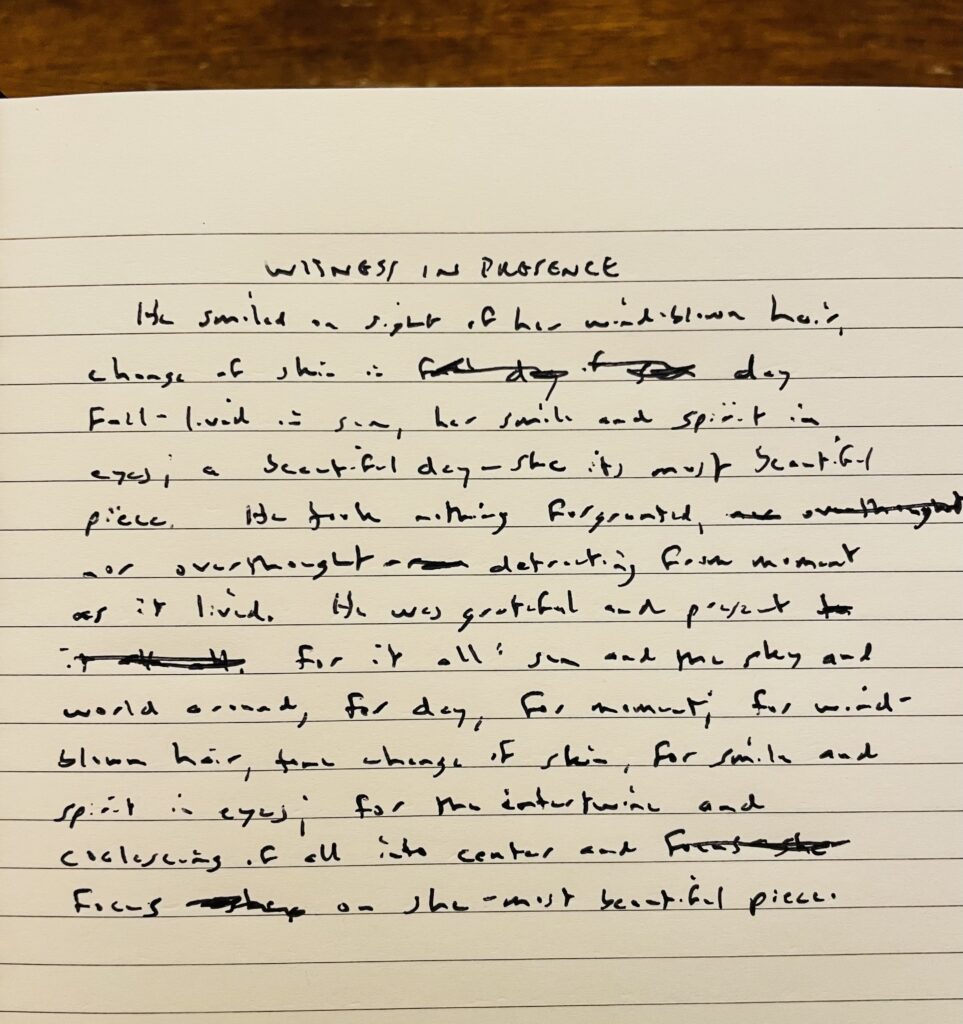 WITNESS IN PRESENCE
He smiled on sight of her wind-blown hair,
change of skin in day
Full-lived in sun, her smile and spirit in
eyes; a beautiful day - she its most beautiful
piece. He took nothing forgranted,
nor overthought detracting from moment
as it lived. He was grateful and present
for it all: sun and the sky and
world around, for day, for moment; for wind-
blown hair, change of skin, for smile and
spirit in eyes; for the intertwine and
coalescing of all into center and
focus on she - most beautiful piece.